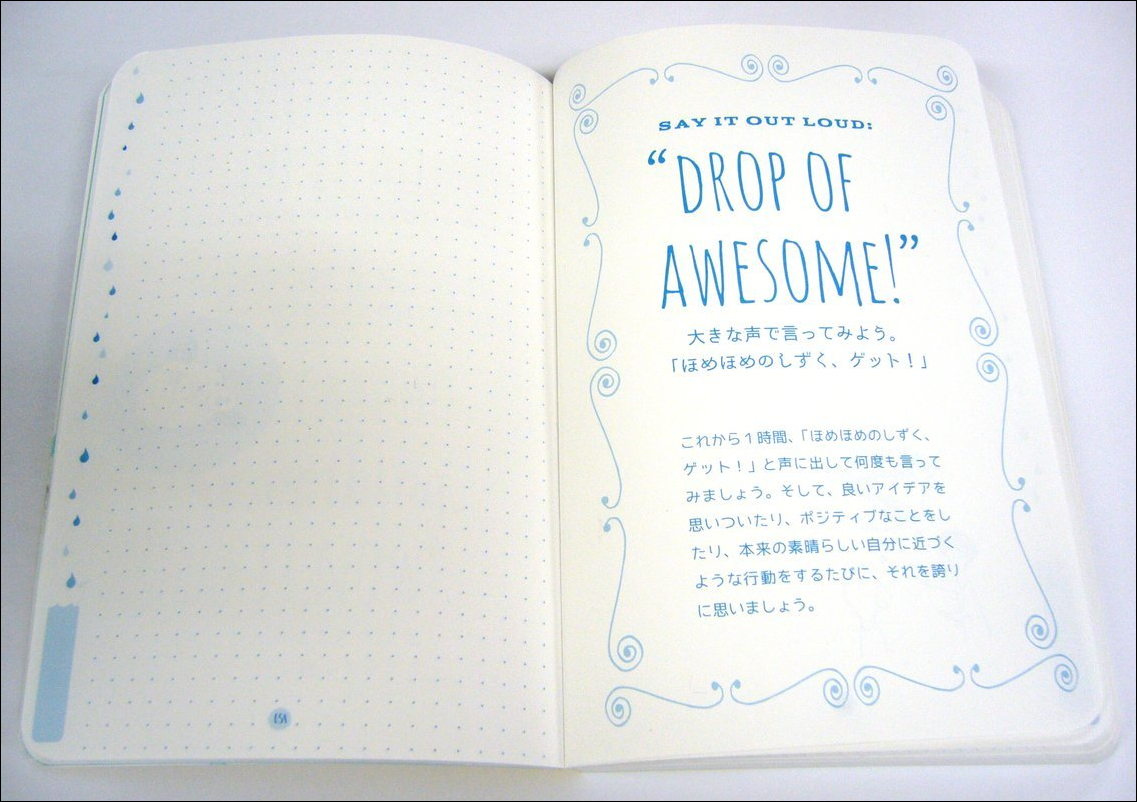 SAY IT OUT LOUD:
“DROP OF
AWESOME!”
大きな声で言ってみよう。
「ほめほめのしずく、ゲット！」
これから１時間、「ほめほめのしずく、
ゲット！」と声に出して何度も言って
みましょう。そして、良いアイデアを
思いついたり、ポジティブなことをし
たり、本来の素晴らしい自分に近づく
ような行動をするたびに、それを誇り
に思いましょう。